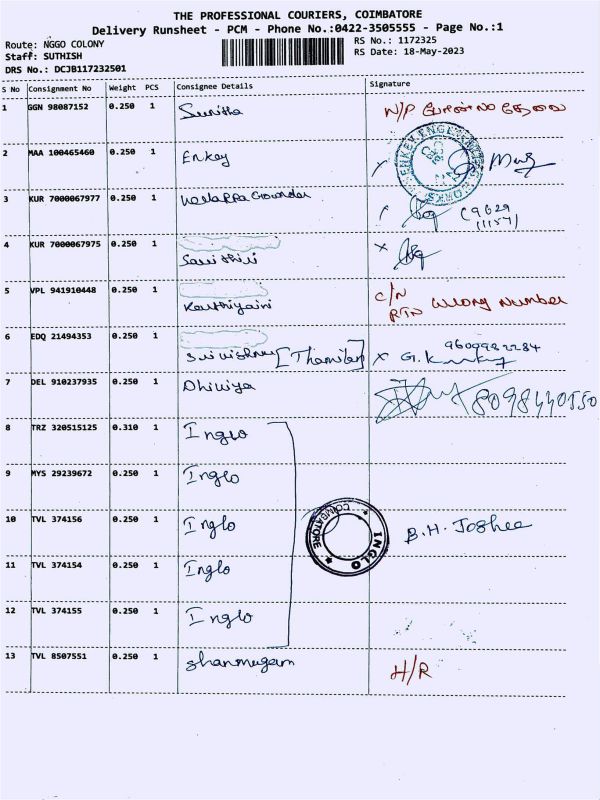 THE PROFESSIONAL COURIERS, COIMBATORE
Delivery Runsheet - PCM - Phone No.:0422-3505555 - Page No.:1
Route: NGGO COLONY
Staff: SUTHISH
DRS No.: DCJB117232501
RS No.: 1172325
RS Date: 18-May-2023
S No Consignment No Weight PCS Consignee Details Signature
1 GGN 98087152 0.250 1 Sunitha N/P
2 MAA 100465460 0.250 1 Enkey
3 KUR 7000067977 0.250 1 Vellappa Gounder
4 KUR 7000067975 0.250 1 Savithiri x
5 VPL 941910448 0.250 1 Karthiyaini C/N
RTN Wrong Number
6 EDQ 21494353 0.250 1 Srivishnu [Thamilan] x G.K 9609982284
7 DEL 910237935 0.250 1 Dhiviya 8098440550
8 TRZ 320515125 0.310 1 Inglo
9 MYS 29239672 0.250 1 Inglo
10 TVL 374156 0.250 1 Inglo INGLO COIMBATORE B.H. Joshee
11 TVL 374154 0.250 1 Inglo
12 TVL 374155 0.250 1 Inglo
13 TVL 8507551 0.250 1 Shanmugam H/R